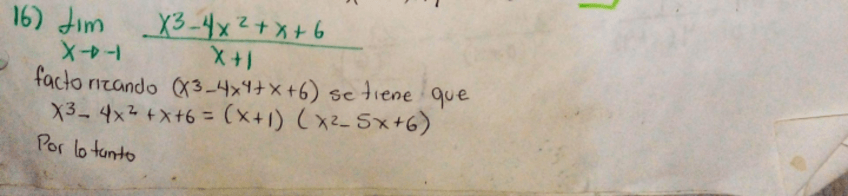 16) lim x³-4x²+x+6
x→-1 x+1
factorizando (x3-4x4+x+6) se tiene que
x3- 4x² +x+6 = (x+1) (x2-5x+6)
Por lo tanto